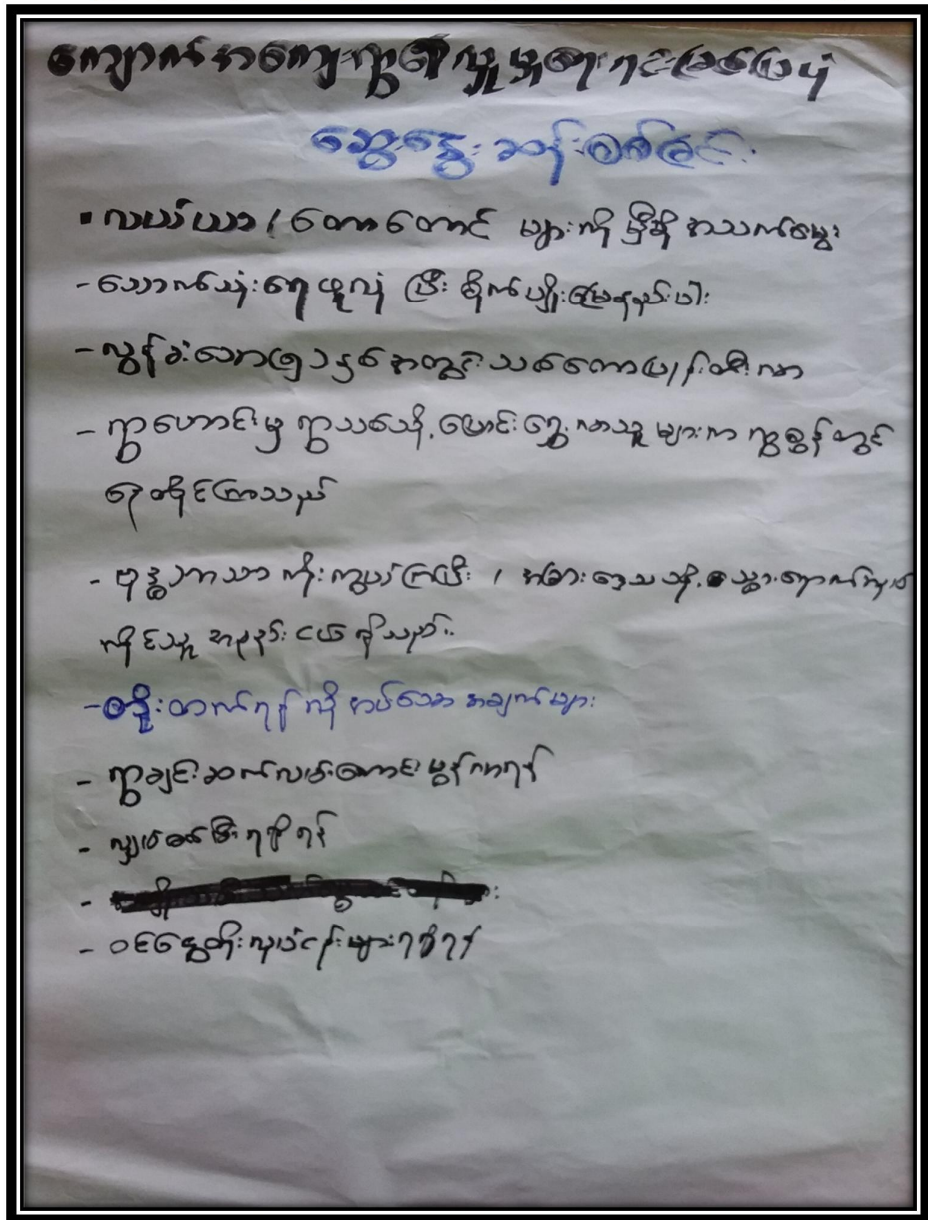 ကျောက်အကျေးရွာ၏လူမှုရေးရင်းမြစ်ပြပုံ
ဆွေးနွေးဆန်းစစ်ခြင်း
▪ လယ်ယာ / တောတောင် များကို မှီခို အသက်မွေး
- သောက်သုံးရေဖူလုံ ပြီး စိုက်ပျိုးမြေနည်းပါး
- လွန်ခဲ့သော (၅) ၁၂နှစ်အတွင်းသစ်တောပြုန်းတီးလာ
- ရွာဟောင်းမှ ရွာသစ်သို့ ပြောင်းရွှေ့လာသူ များက ရွာစွန်တွင်
နေထိုင်ကြသည်
- ဗုဒ္ဓဘာသာ ကိုးကွယ်ကြပြီး / အခြားဒေသသို့ သွားရောက်လုပ်
ကိုင်သူ အနည်းငယ် ရှိသည်။
- တိုးတက်ရန် လိုအပ်သော အချက်များ
- ရွာချင်းဆက်လမ်းကောင်းမွန်လာရန်
- လျှပ်စစ်မီးရရှိရန်
-
- ဝင်ငွေတိုးလုပ်ငန်းများရရှိရန်